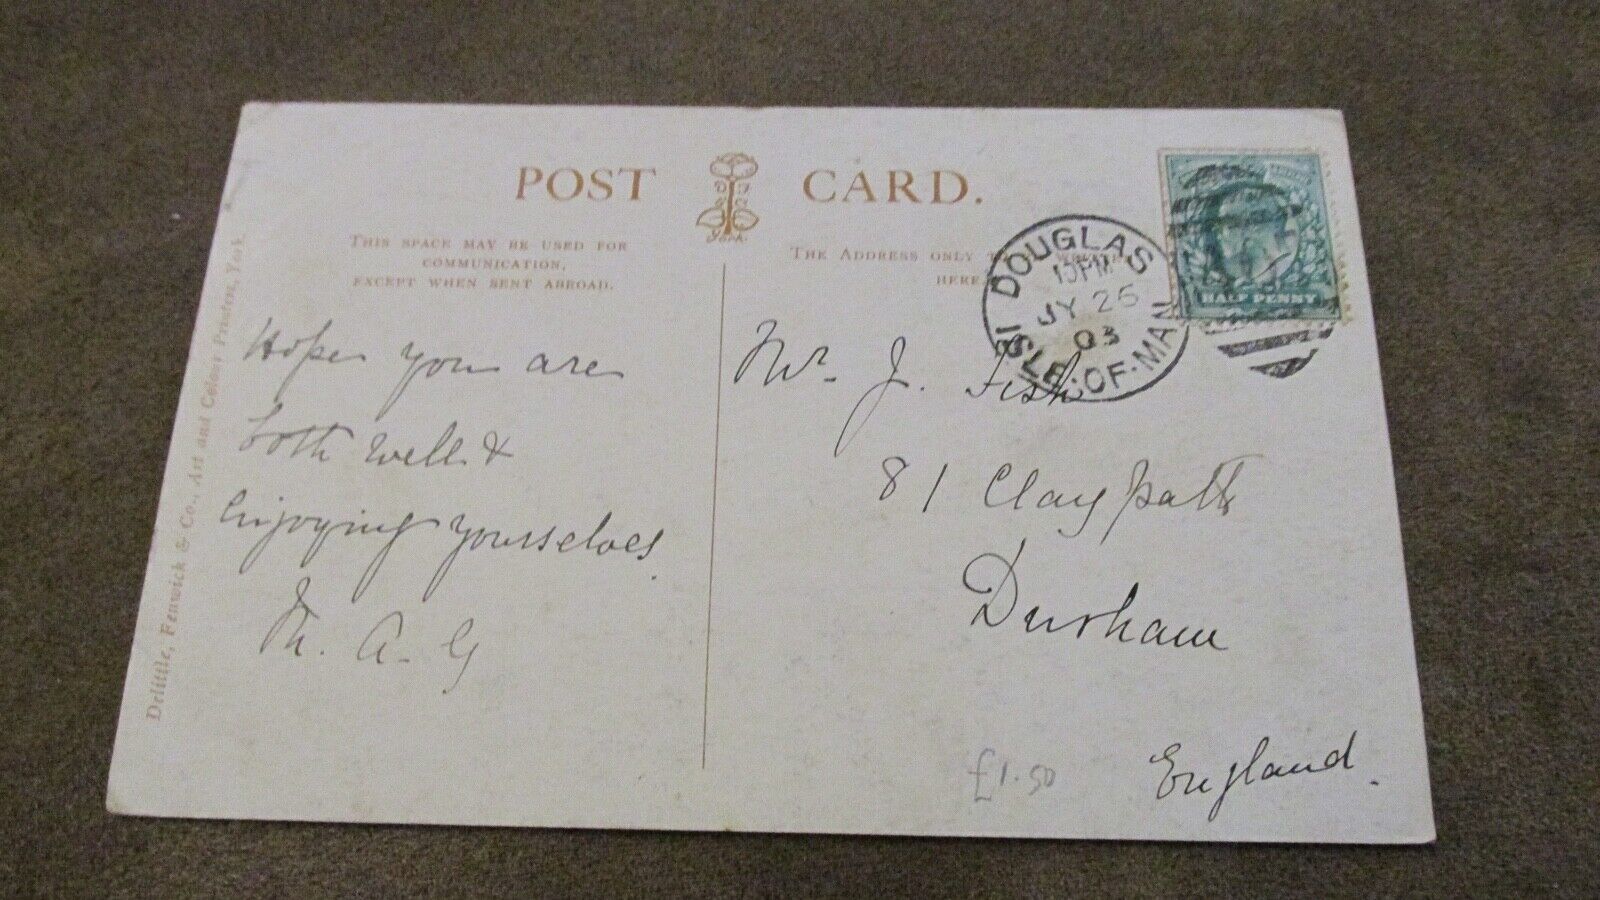 POST CARD.
York.
THIS SPACE MAY BE USED FOR
COMMUNICATION,
EXCEPT WHEN SENT ABROAD.
THE ADDRESS ONLY
HERE
Delittle, Fenwick & Co., Art and Colour Printers, York.
Hope you are
both well &
enjoying yourselves.
M. A. G
DOUGLAS
10 PM
JY 25
03
ISLE.OF.MAN
HALF PENNY
Mr. J. Fish
81 Claypath
Durham
England.
£1.50